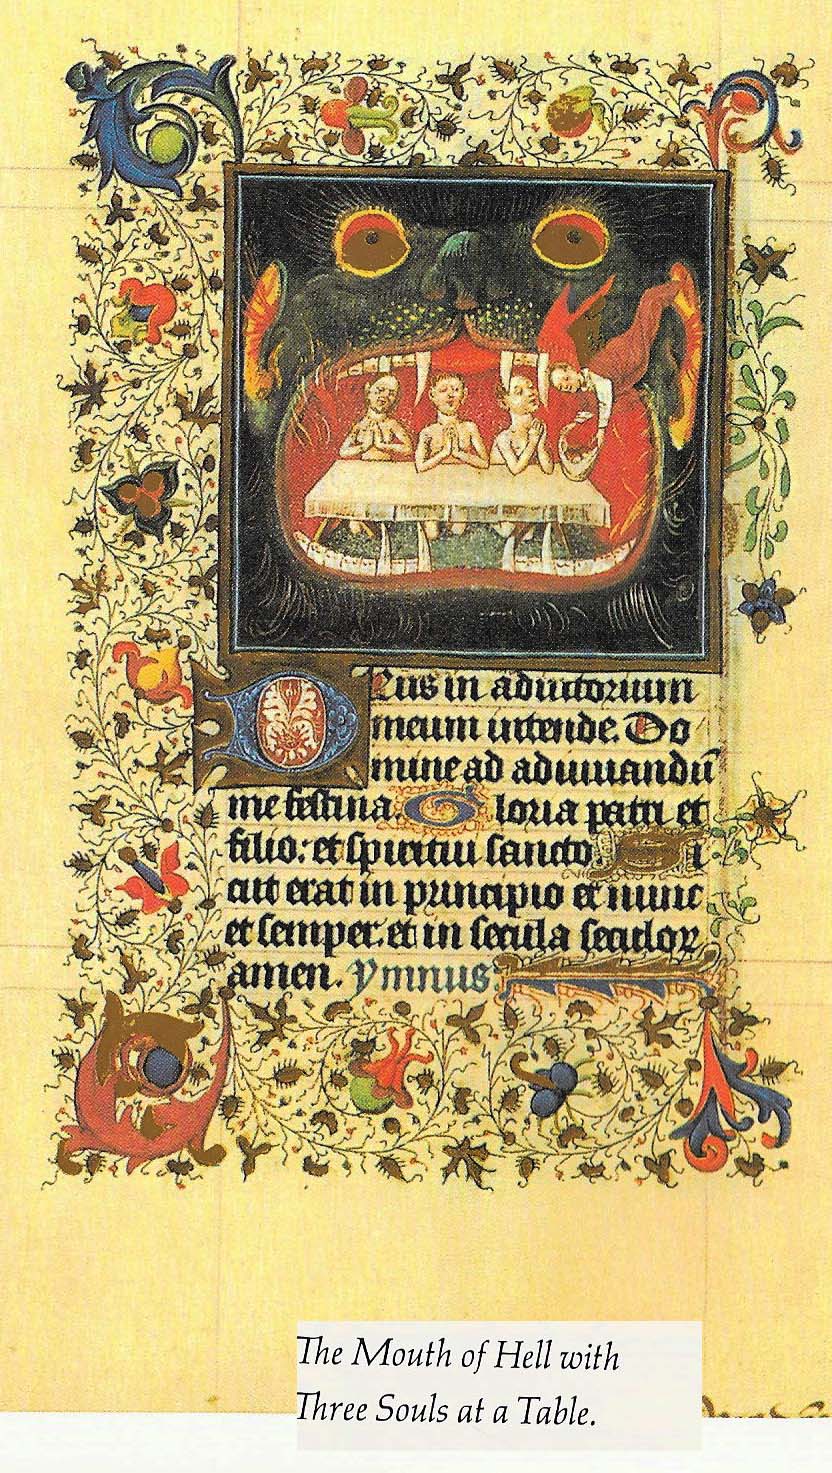 Deus in adiutorium
meum intende. Do
mine ad adiuuandū
me festina. Gloria patri et
filio: et spiritui sancto. Si
cut erat in principio et nunc
et semper. et in secula seculoꝝ
amen. Ymnus.
The Mouth of Hell with
Three Souls at a Table.